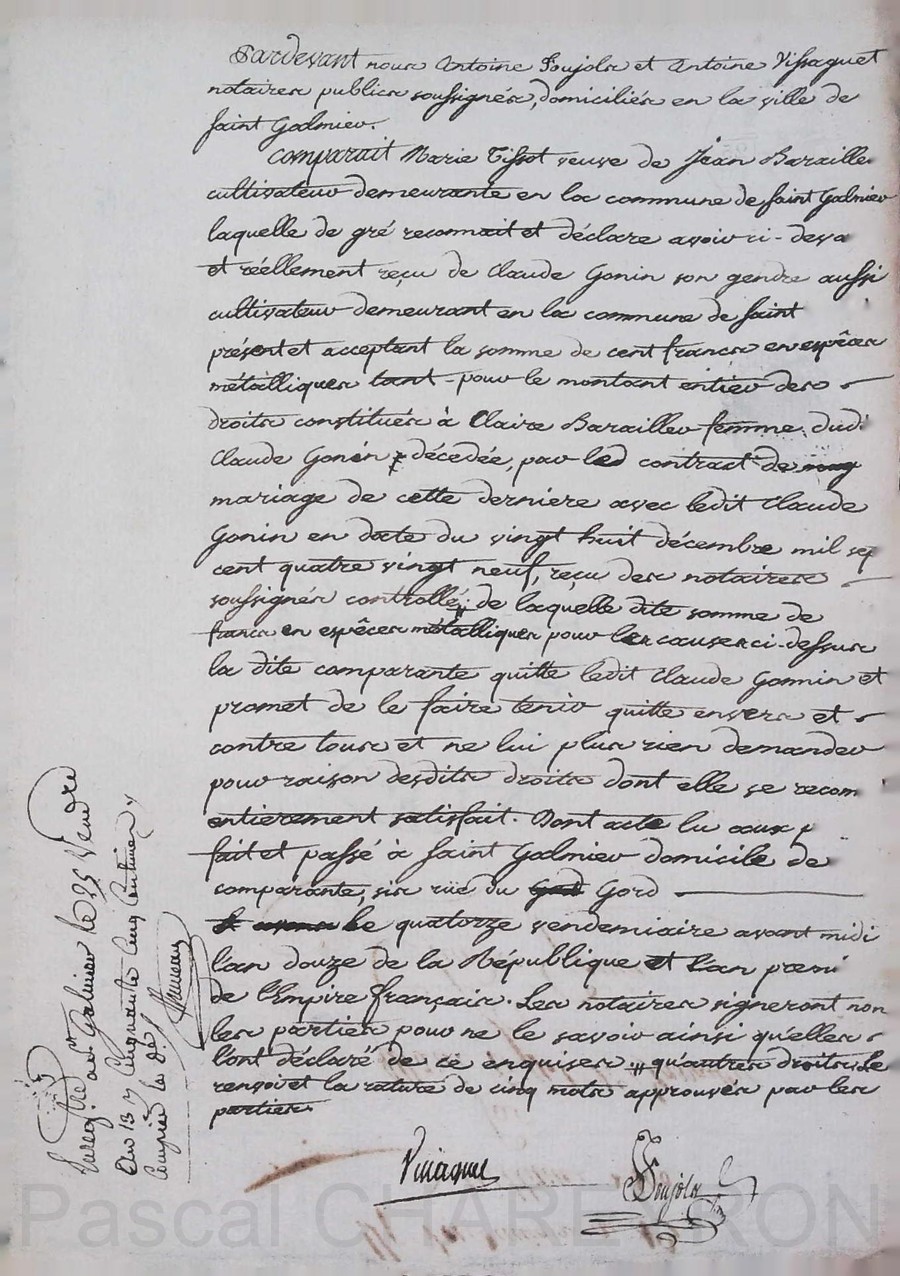 Pardevant nous Antoine Poujols et Antoine Vissaguet
notaires publics soussignés, domiciliés en la ville de
saint Galmier.
comparait Marie Tissot veuve de Jean Baraille
cultivateur demeurante en la commune de saint Galmier
laquelle de gré reconnait et déclare avoir ci-deva
et réellement reçu de Claude Gonin son gendre aussi
cultivateur demeurant en la commune de saint
présent et acceptant la somme de cent francs en espèces
métalliques tant pour le montant entier des
droits constitués à Claire Barailler femme dudi
Claude Gonin décédée, par le contract de
mariage de cette derniere avec ledit Claude
Gonin en date du vingt huit décembre mil sep
cent quatre vingt neuf, reçu des notaires
soussignés controllé ; de laquelle dite somme de
francs en espèces métalliques pour les causes ci-dessus
la dite comparante quitte ledit Claude Gonnin et
promet de le faire tenir quitte envers et
contre tous et ne lui plus rien demander
pour raison desdits droits dont elle se recon
entierement satisfait. Dont acte lu aux p
fait et passé à saint Galmier domicile de
comparante, sis rüe du Gord
le quatorze vendemiaire avant midi
l'an douze de la République et l'an premi
de l'Empire français. Les notaires signeront non
les parties pour ne le savoir ainsi qu'elles
l'ont déclaré de ce enquises # qu'autres droits. Le
renvoi et la rature de cinq mots approuvés par les
parties.
Vissaguet
Poujols
Enreg.tré a St Galmier le 25 Vendre
an 13 cinquante cinq centimes
compris la de.